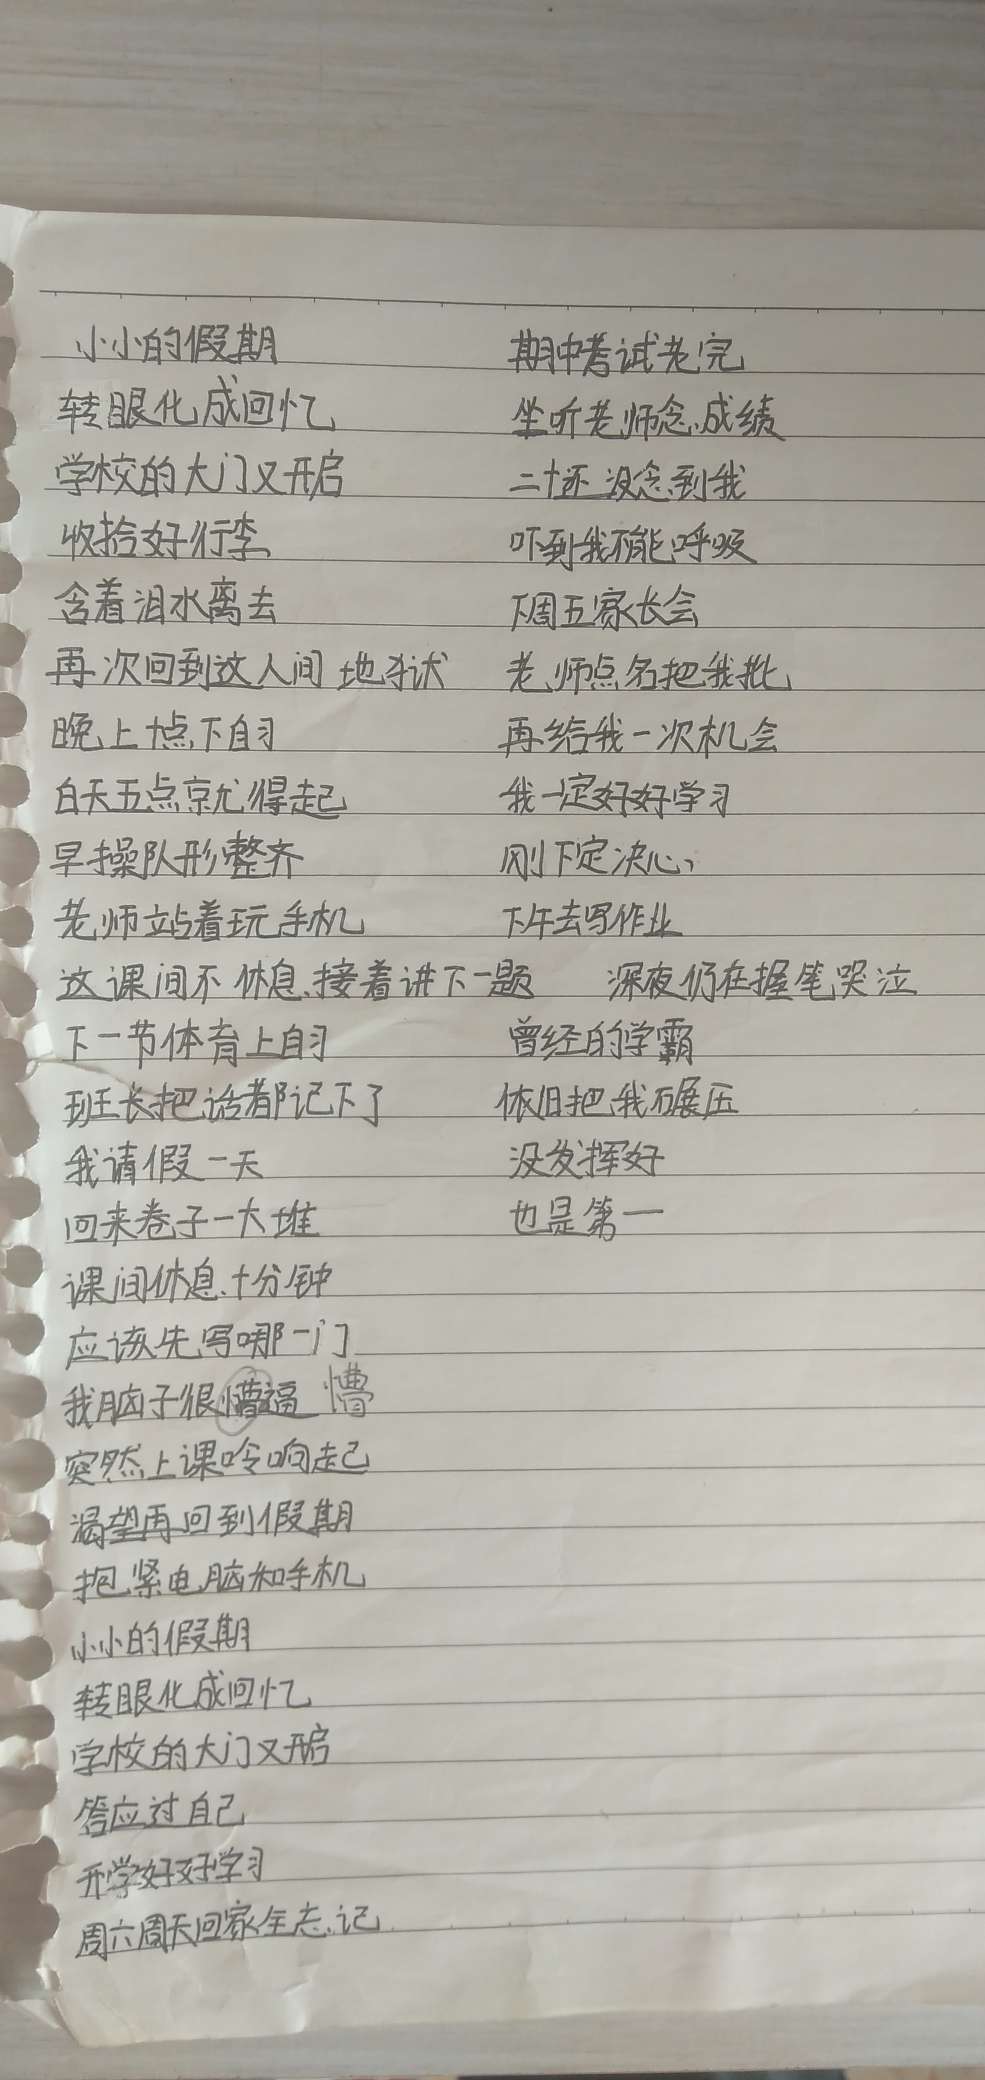 小小的假期
转眼化成回忆
学校的大门又开启
收拾好行李
含着泪水离去
再次回到这人间地狱
晚上十点下自习
白天五点就得起
早操队形整齐
老师站着玩手机
这课间不休息接着讲下一题
下一节体育上自习
班长把话都记下了
我请假一天
回来卷子一大堆
课间休息十分钟
应该先写哪一门
我脑子很懵逼 懵
突然上课呤响起
渴望再回到假期
抱紧电脑和手机
小小的假期
转眼化成回忆
学校的大门又开启
答应过自己
开学好好学习
周六周天回家全忘记
期中考试考完
坐听老师念成绩
二十还没念到我
吓到我不能呼吸
下周五家长会
老师点名把我批
再给我一次机会
我一定好好学习
刚下定决心
下午去写作业
深夜仍在握笔哭泣
曾经的学霸
依旧把我碾压
没发挥好
也是第一